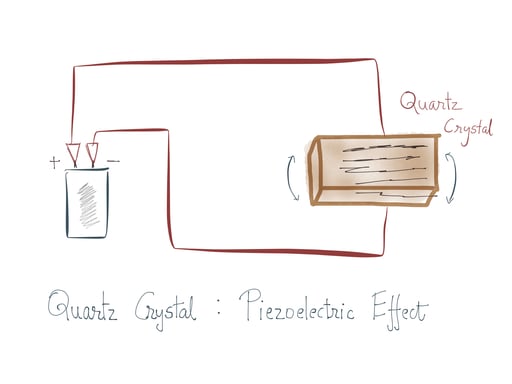 Quartz
Crystal
+ −
Quartz Crystal : Piezoelectric Effect